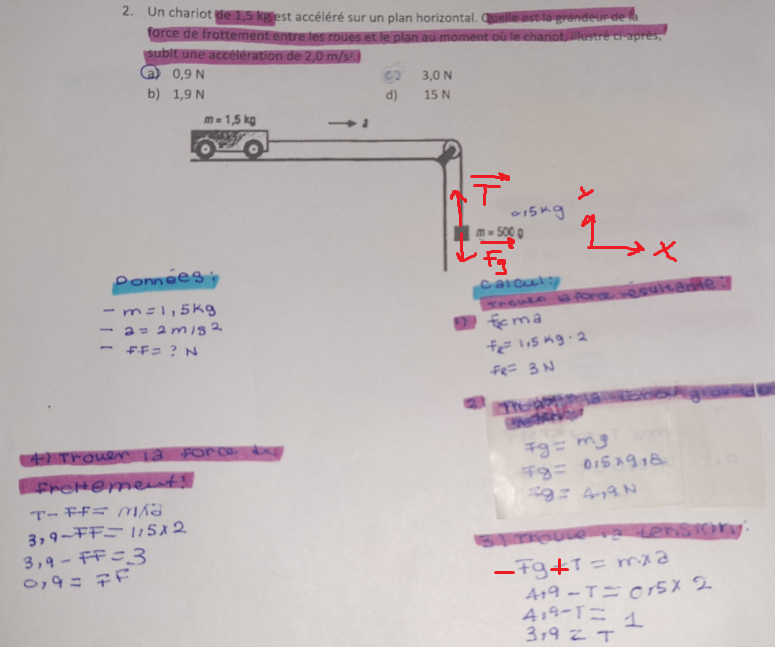 2. Un chariot de 1,5 kg est accéléré sur un plan horizontal. Quelle est la grandeur de la
force de frottement entre les roues et le plan au moment où le chariot, illustré ci-après,
subit une accélération de 2,0 m/s².
a) 0,9 N
c) 3,0 N
b) 1,9 N
d) 15 N
m = 1,5 kg
a
T
0,5 kg
m = 500 g
Fg
y
x
Données:
- m = 1,5 kg
- a = 2 m/s2
- FF = ? N
Calcul:
Trouver la force résultante:
1)
FR= ma
FR= 1,5 kg · 2
FR= 3 N
2)
Fg = mg
Fg = 0,5 x 9,8
Fg = 4,9 N
3) Trouve la tension:
- Fg + T = m x a
4,9 - T = 0,5 x 2
4,9 - T = 1
3,9 = T
4) Trouver la force du
Frottement:
T - FF = m x a
3,9 - FF = 1,5 x 2
3,9 - FF = 3
0,9 = FF